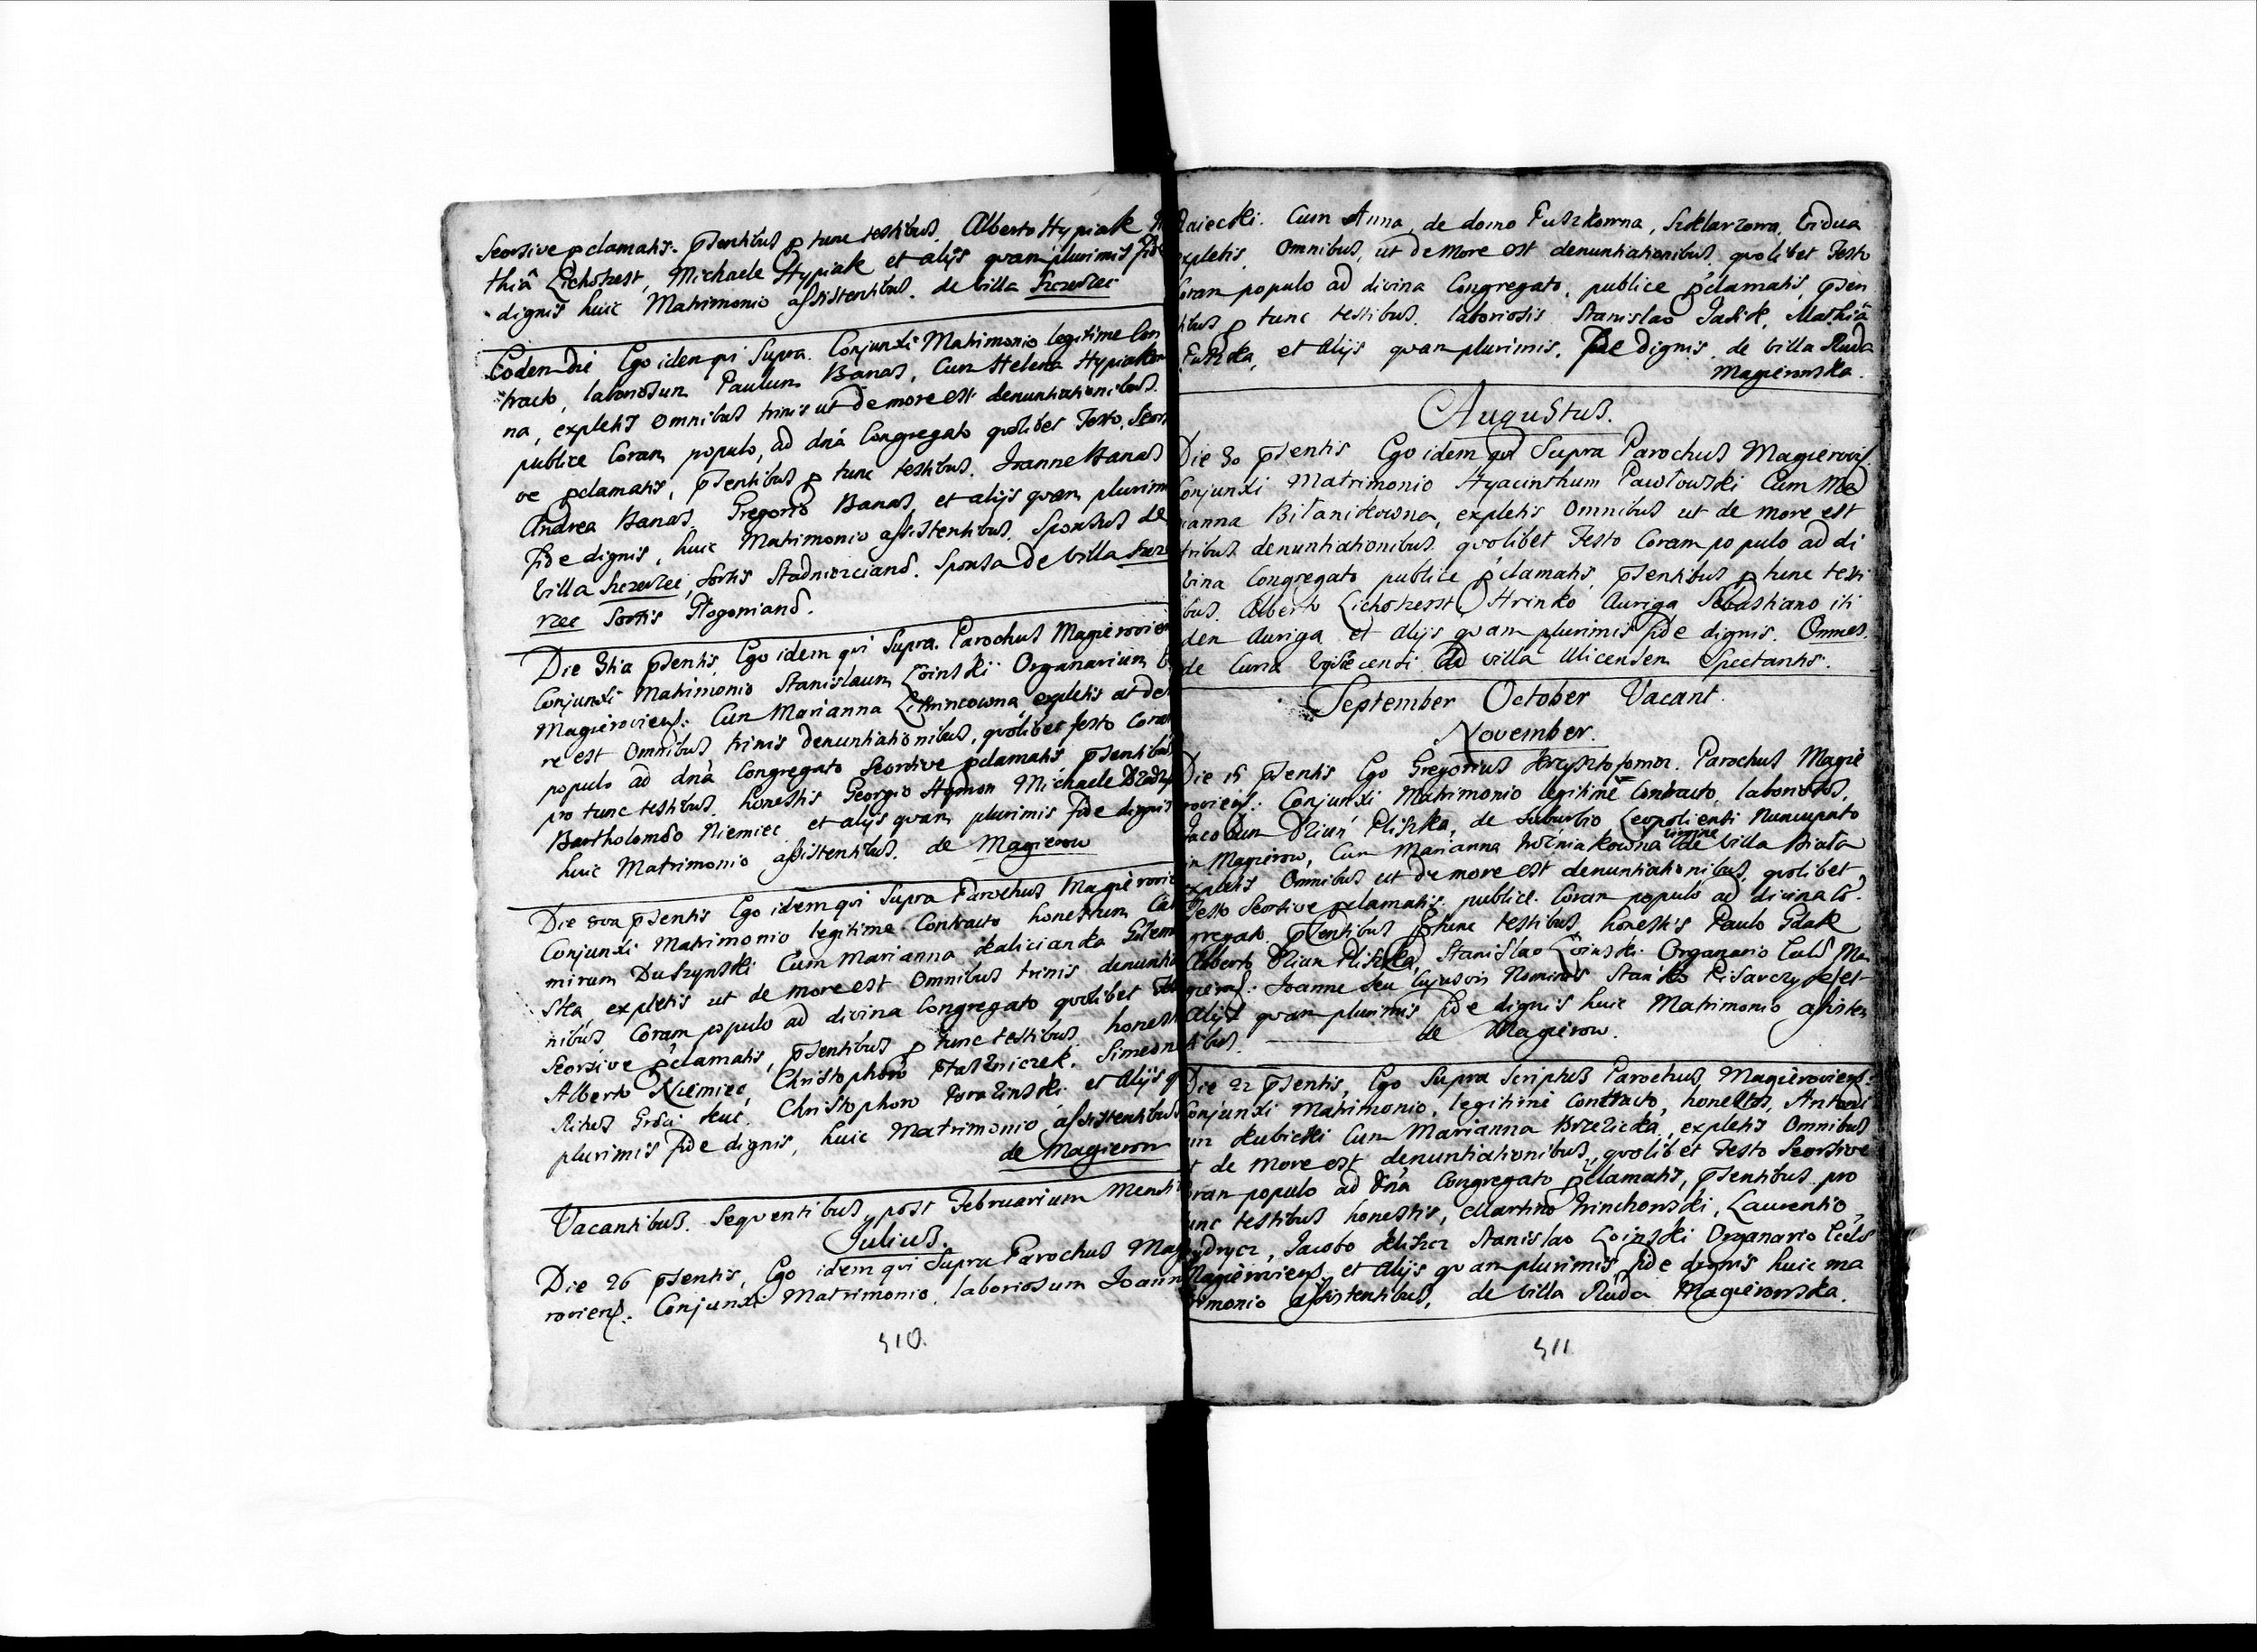 Seorsive pclamatis. pSentibus p tunc testibus. Alberto Hypiak
thiâ Lichotzest, Michaele Hypiak et alijs quam plurimis fide
dignis huic Matrimonio assistentibus. de villa Szczerzec
Eodem Die Ego idem qui Supra. Conjunxi Matrimonio legitime Con
tracto, laboriosum Paulum Banas, Cum Helena Hypiakow
na, expletis omnibus trinis ut de more est denuntiationibus.
publice Coram populo, ad dnâ Congregato quolibet Festo. Seorsi
ve pclamatis, pSentibus p tunc testibus. Joanne Banas
Andrea Banas. Gregorio Banas, et alijs quam plurim
fide dignis, huic Matrimonio assistentibus. Sponsus de
Villa Szczerzec, Sortis Stadnicciand. Sponsa de Villa Szcze
rzec Sortis Glogoniand.
Die 3tia pSentis Ego idem qui Supra. Parochus Magierovien
Conjunxi Matrimonio Stanislaum Łoinski Organarium
Magieroviens: Cum Marianna expletis ut de
re est Omnibus trinis denuntiationibus, quolibet festo Coram
populo ad dnâ Congregato Seorsive pclamatis pSentibus
pro tunc testibus. honestis Georgio Hymon Michaele
Bartholomeo Niemiec et alijs quam plurimis fide dignis
huic Matrimonio assistentibus. de Magierow
Die 8va pSentis Ego idem qui Supra Parochus Magierovie
Conjunxi Matrimonio legitime Contracto honestum Cas
mirum Duszynski Cum Marianna Kalicianka
Ska, expletis ut de more est Omnibus trinis denuntia
nibus Coram populo ad divina Congregato quolibet
Seorsive pclamatis, pSentibus p tunc testibus. honest
Alberto Niemiec, Christophoro Ptaszniczek. Simeon
Ritus Christophoro et Alijs q
plurimis fide dignis, huic Matrimonio assistentibus
de Magierow
Vacantibus. Sequentibus, post Februarium Mensi
Julius.
Die 26 pSentis, Ego idem qui Supra Parochus Mag
roviens. Conjunxi Matrimonio, laboriosum Joann
510.
Zaiecski. Cum Anna, de domo Puszkowna, Szklarzowa, Vidua
expletis. Omnibus, ut de More est denuntiationibus, quolibet Festo
Coram populo ad divina Congregato, publice pclamatis, pSen
tibus p tunc testibus. laboriosis Stanislao Jasik, Mathiâ
Puszka, et Alijs quam plurimis. fide dignis. de villa Ruda
Magierowska.
Augustus.
Die 30 pSentis Ego idem qui Supra Parochus Magierovis
Conjunxi Matrimonio Hyacinthum Pawłowski Cum Ma
rianna Bilanikowna, expletis Omnibus ut de more est
tribus denuntiationibus quolibet Festo Coram populo ad di
vina Congregato publice pclamatis, pSentibus p tunc testi
bus. Alberto Lichotzesst, Hrinko Auriga Sebastiano iti
dem Auriga et Alijs quam plurimis fide dignis. Omnes.
de Curia ad villa Ulicensem Spectantis.
September October Vacant
November.
Die 15 pSentis Ego Gregorius Krzysztofomor. Parochus Magie
roviens: Conjunxi Matrimonio legitime Contracto, laboriosos,
Jacobum Dziun Pliszka, de Suburbio Leopolienti Nuncupato
in Magierow, Cum Marianna Woźniakowna virgine de villa Biała
expletis Omnibus ut de more est denuntiationibus, quolibet
Festo Seorsive pclamatis. publice. Coram populo ad divina Co
gregato. pSentibus p tunc testibus, honestis Paulo Gdak
Alberto Dziun Pliszka, Stanislao Łoinski Organario Ma
gierovs: Joanne Seu Cujusvis Nominis Stanko Pisarczyk et
Alijs quam plurimis fide dignis huic Matrimonio assisten
tibus. de Magierow.
Die 22 pSentis, Ego Supra Scriptus Parochus Magieroviens:
Conjunxi Matrimonio, legitime Contracto, honestos, Antoni
um Kubicki Cum Marianna Brzezicka, expletis Omnibus
ut de More est denuntiationibus, quolibet Festo Seorsive
Coram populo ad dnâ Congregato pclamatis, pSentibus pro
tunc testibus honestis, Martino Winchowski, Laurentio
Jacobo Kliszcz Stanislao Łoinski Organario
Magieroviens et Alijs quam plurimis, fide dignis huic ma
trimonio assistentibus, de villa Ruda Magierowska.
511